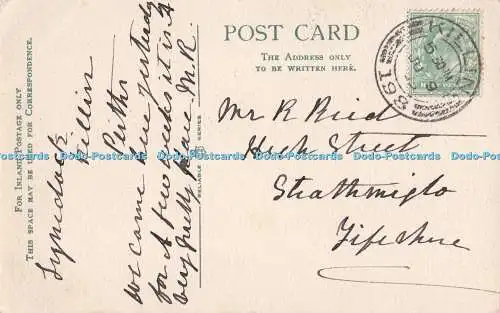 POST CARD
THE ADDRESS ONLY
TO BE WRITTEN HERE.
FOR INLAND POSTAGE ONLY
THIS SPACE MAY BE USED FOR CORRESPONDENCE.
Lynedoch
Killin
Perths
We came here yesterday
for a few weeks it is a
very pretty place M.R.
RELIABLE
SERIES
KILLIN
198
Mr R Reid
High Street
Strathmiglo
Fifeshire
Dodo-Postcards Dodo-Postcards Dodo-Postcards Dodo-Postcards Dodo-Postcards Dodo-Postcards